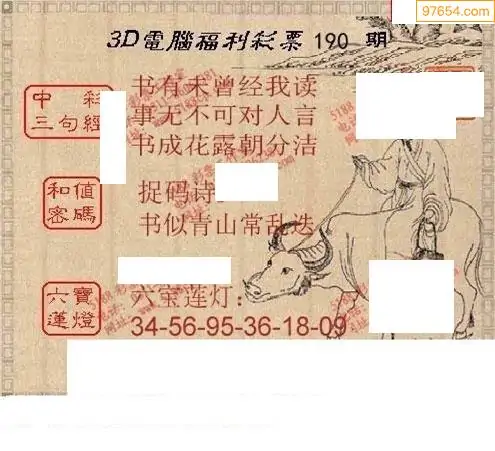 97654.com
3D電腦福利彩票 190 期
中彩
三句經
书有未曾经我读
事无不可对人言
书成花露朝分洁
和值
密碼
捉码诗:
书似青山常乱迭
六寶
蓮燈
六宝莲灯:
34-56-95-36-18-09